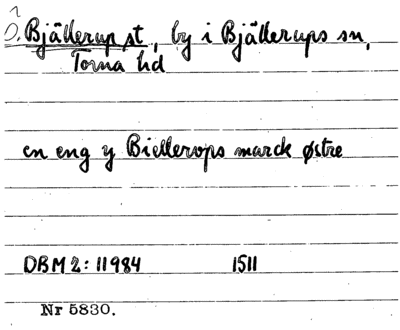 Ö. Bjällerup st, by i Bjällerups sn,
Torna hd
en eng y Biellerops marck østre
DBM 2: 11984 1511
Nr 5830.